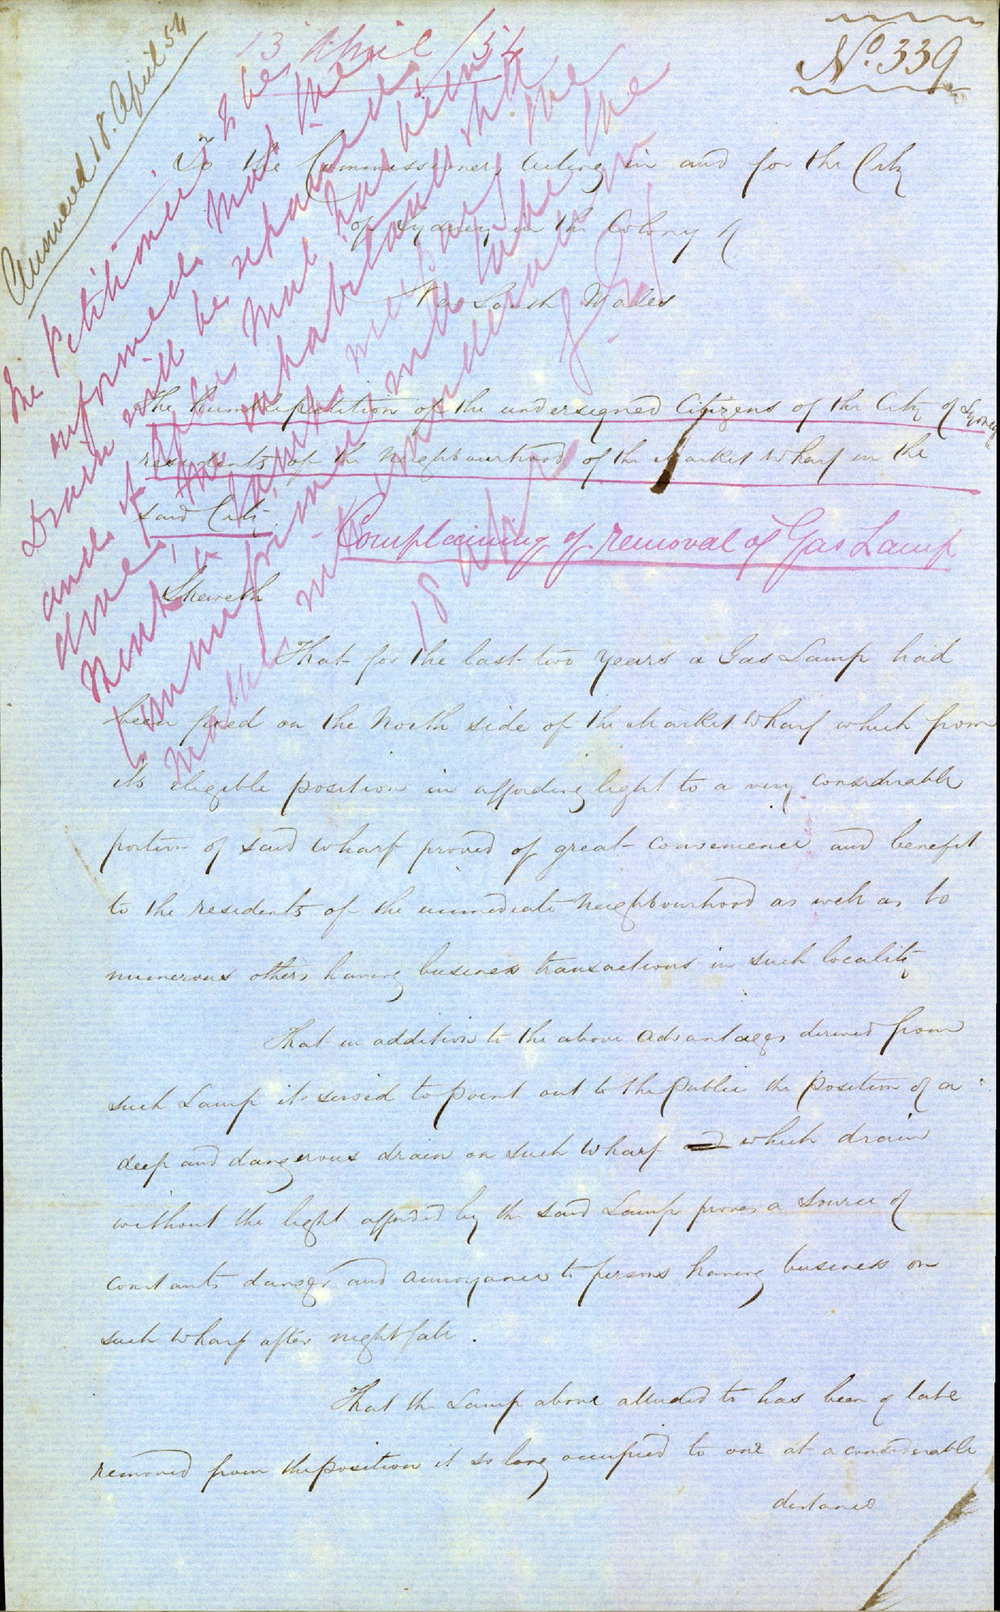 No. 339
13 April /54
Answered 18. April 54
To the Commissioners Acting in and for the City
of Sydney in the Colony of
New South Wales
The humble petition of the undersigned Citizens of the City of Sydney
residents of the Neighbourhood of the Market Wharf in the
said City.
Complaining of removal of Gas Lamp
Sheweth
That for the last two years a Gas Lamp had
been fixed on the North side of the Market Wharf which from
its eligible position in affording light to a very considerable
portion of said Wharf proved of great convenience and benefit
to the residents of the immediate Neighbourhood as well as to
numerous others having business transactions in such locality
That in addition to the above advantages derived from
such Lamp it served to point out to the public the position of a
deep and dangerous drain on such Wharf which drain
without the light afforded by the said Lamp proves a source of
constant danger and annoyance to persons having business on
such Wharf after nightfall.
That the Lamp above alluded to has been of late
removed from the position it so long occupied to one at a considerable
distance
The Petitioners to be
informed that the
Drain will be repaired
and if had been
done
the inhabitants the
Commissioners will take the
matter into consideration
18 April